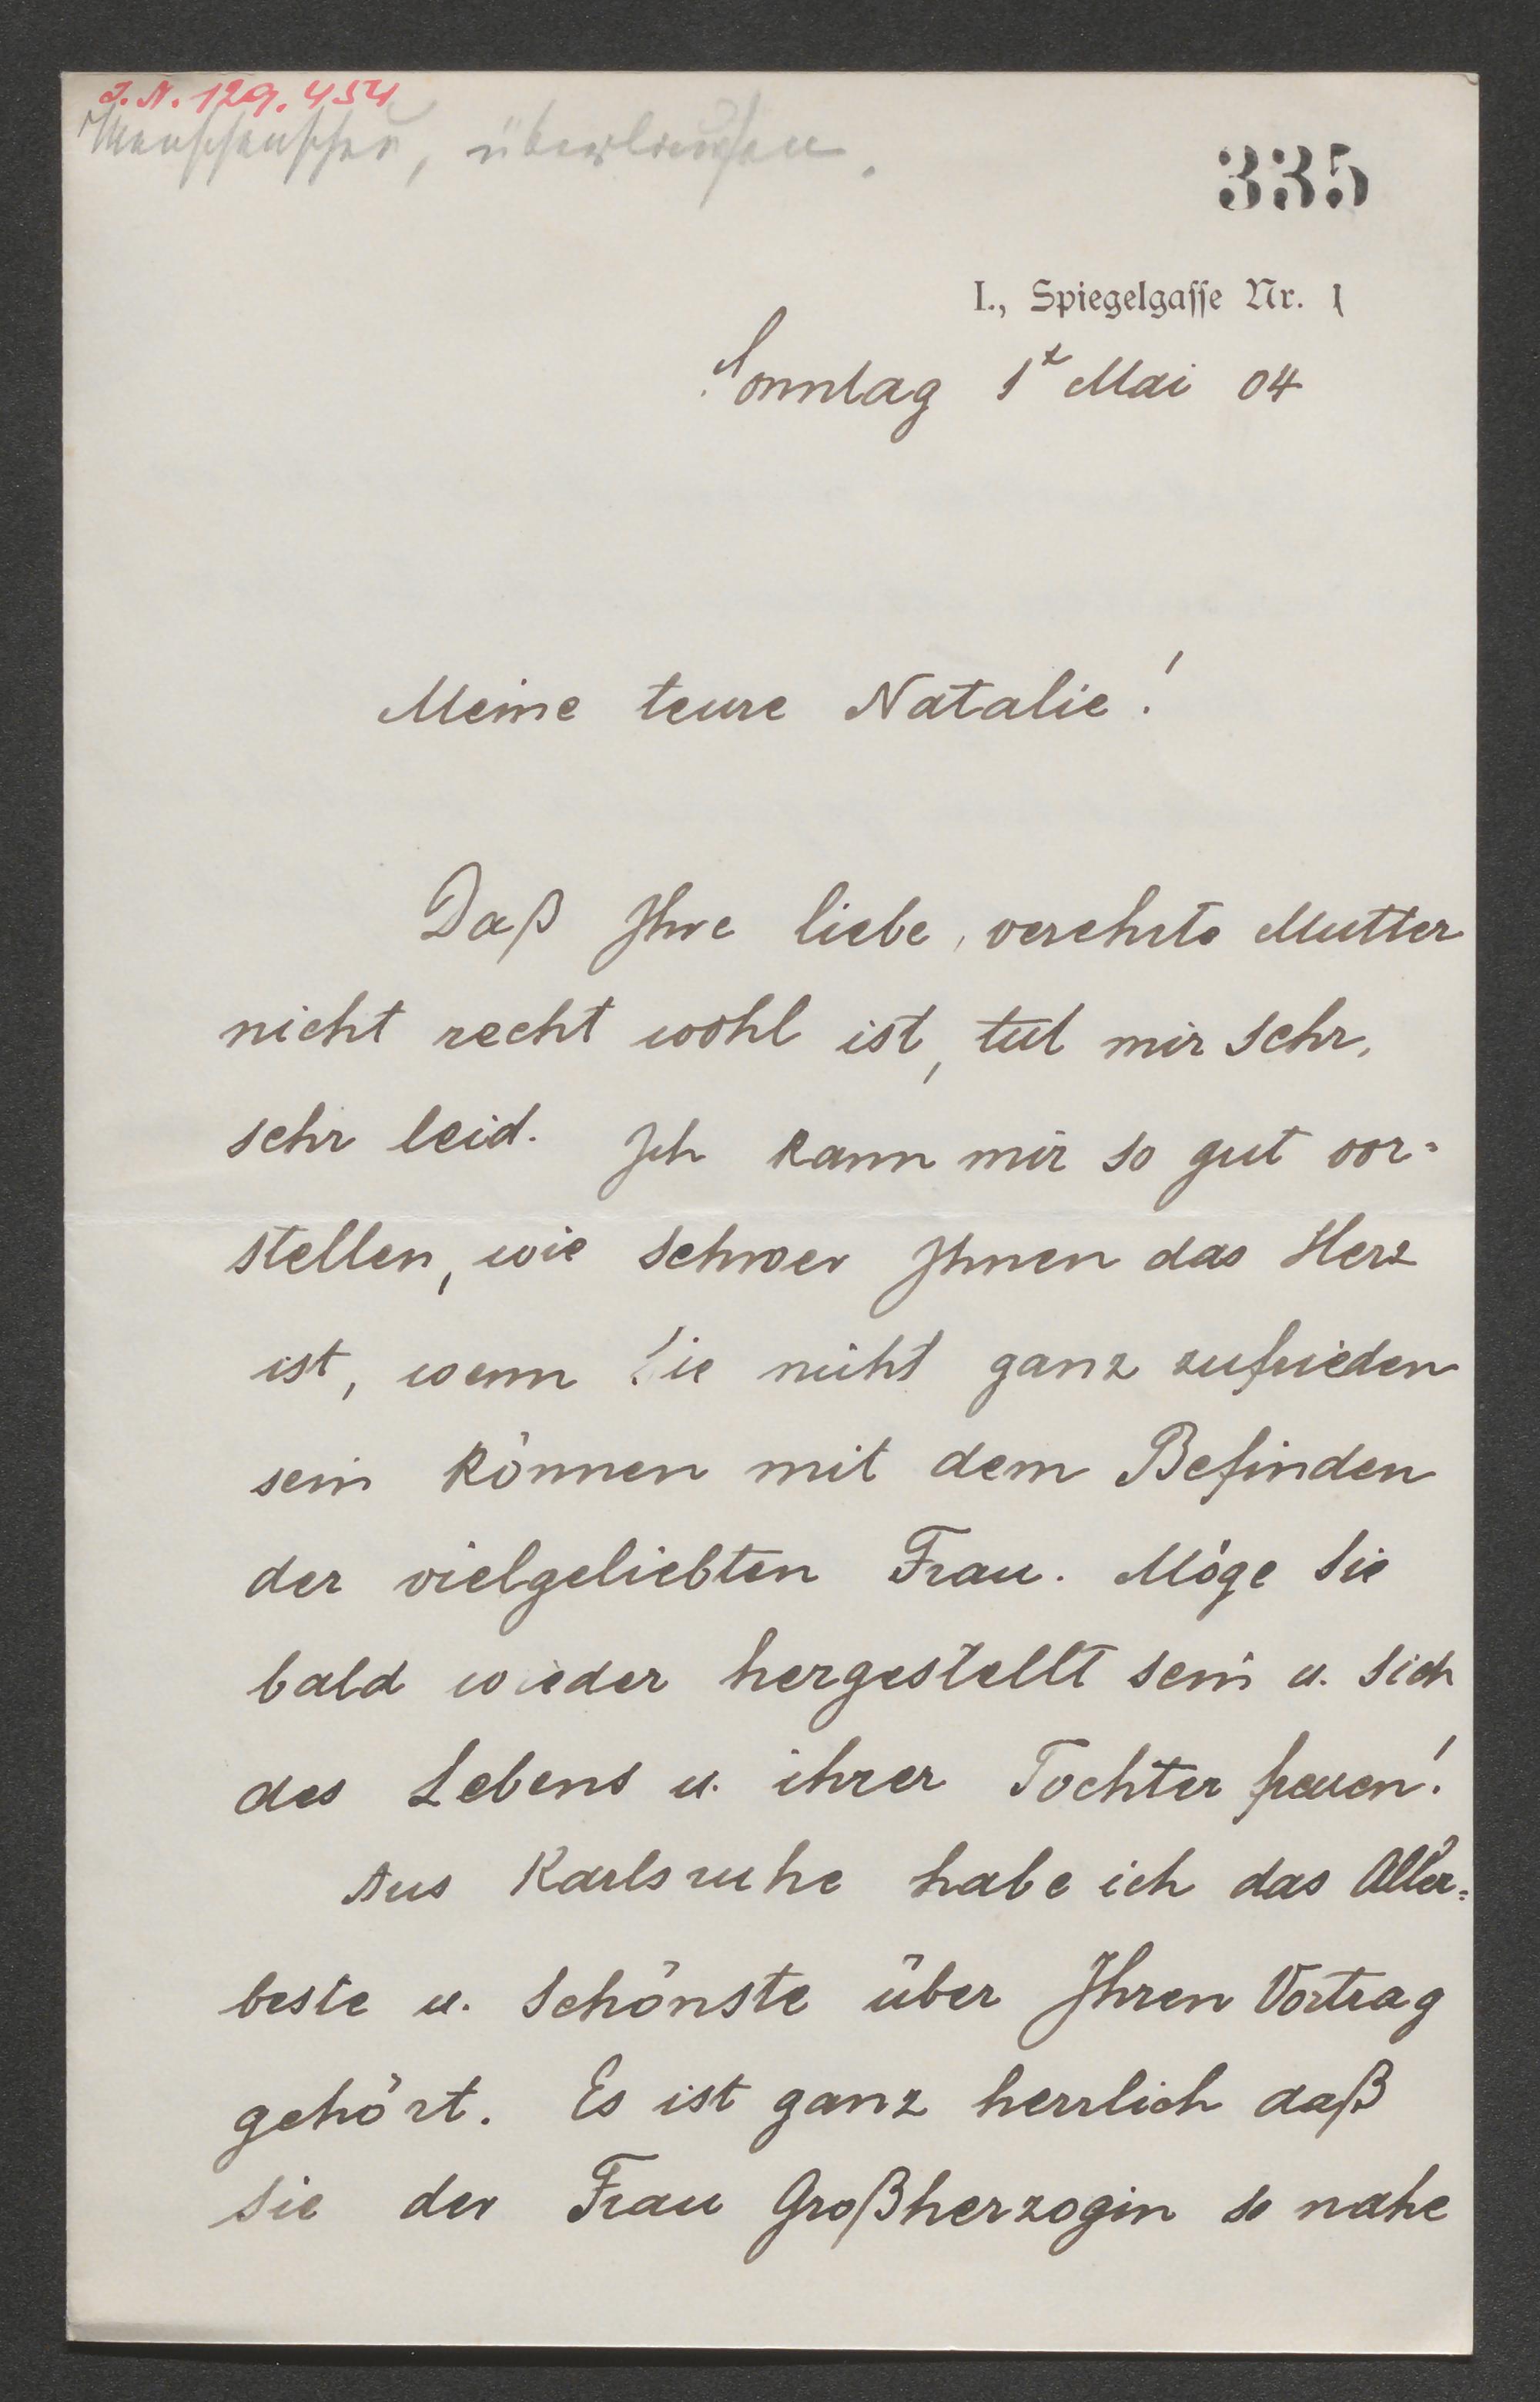 J. N. 129.454
Menschenscheu, überlaufen.
335
I., Spiegelgasse Nr. 1
Sonntag 1t Mai 04
Meine teure Natalie!
Daß Ihre liebe, verehrte Mutter
nicht recht wohl ist, tut mir sehr,
sehr leid. Ich kann mir so gut vor=
stellen, wie schwer Ihnen das Herz
ist, wenn Sie nicht ganz zufrieden
sein können mit dem Befinden
der vielgeliebten Frau. Möge sie
bald wieder hergestellt sein u. sich
des Lebens u. ihrer Tochter freuen!
Aus Karlsruhe habe ich das Aller=
beste u. Schönste über Ihren Vortrag
gehört. Es ist ganz herrlich daß
Sie der Frau Großherzogin so nahe